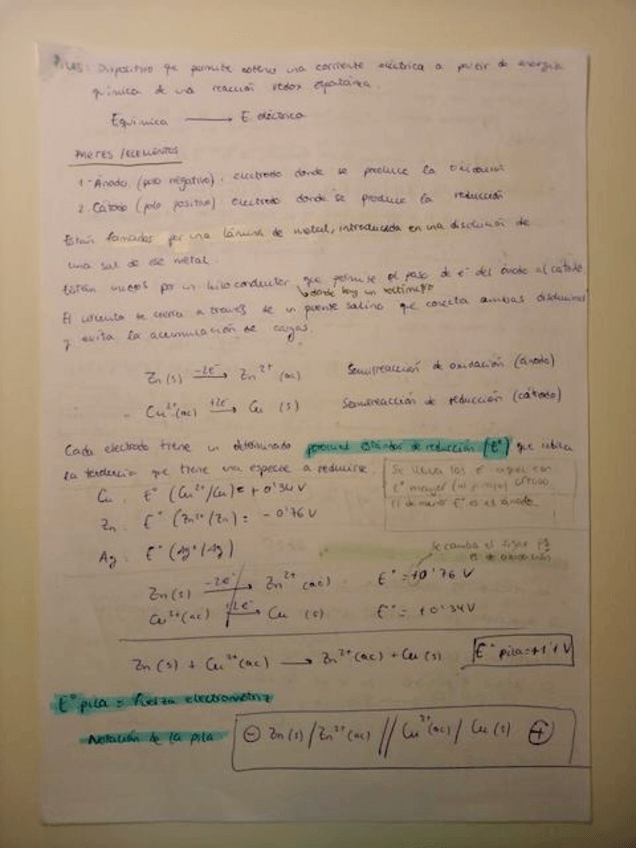 PILAS: Dispositivo que permite obtener una corriente eléctrica a partir de energía
química de una reacción redox espontánea.
E química ⟶ E eléctrica
PARTES/ELEMENTOS
1- Ánodo (polo negativo): electrodo donde se produce la oxidación
2. Cátodo (polo positivo) electrodo donde se produce la reducción
Están formados por una lámina de metal, introducida en una disolución de
una sal de ese metal.
Están unidos por un hilo conductor que permite el paso de e⁻ del ánodo al cátodo
↳ donde hay un voltímetro
El circuito se cierra a través de un puente salino que conecta ambas disoluciones
y evita la acumulación de cargas.
Zn (s) –2e⁻⟶ Zn²⁺ (ac) Semirreacción de oxidación (ánodo)
Cu²⁺(ac) +2e⁻⟶ Cu (s) Semirreacción de reducción (cátodo)
Cada electrodo tiene un determinado potencial estándar de reducción (E°) que indica
la tendencia que tiene una especie a reducirse.
Se lleva los e⁻ aquel con
E° mayor cátodo
El de menor E° es el ánodo
Cu: E° (Cu²⁺/Cu) = +0'34 V
Zn: E° (Zn²⁺/Zn) = -0'76 V
Ag: E° (Ag⁺/Ag)
se cambia el signo pq
es de oxidación
Zn(s) –2e⁻⟶ Zn²⁺ (ac) E° = +0'76 V
Cu²⁺(ac) +2e⁻⟶ Cu (s) E° = +0'34V
Zn (s) + Cu²⁺(ac) ⟶ Zn²⁺(ac) + Cu (s) E° pila = +1'1 V
E° pila = Fuerza electromotriz
Notación de la pila ⊖ Zn(s) / Zn²⁺(ac) // Cu²⁺(ac) / Cu (s) ⊕